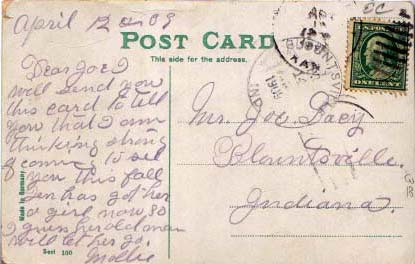 April 12 09
POST CARD
This side for the address.
Dear Joe I
will send you
this card to tell
you that I am
thinking strong
of coming to see
you this fall
has got her
a girl now so
I guess her old man
will let her go.
Mollie
Mr. Joe Lacy
Blountsville.
Indiana.
Made in Germany
Sest 100
1909
IND
ONE CENT